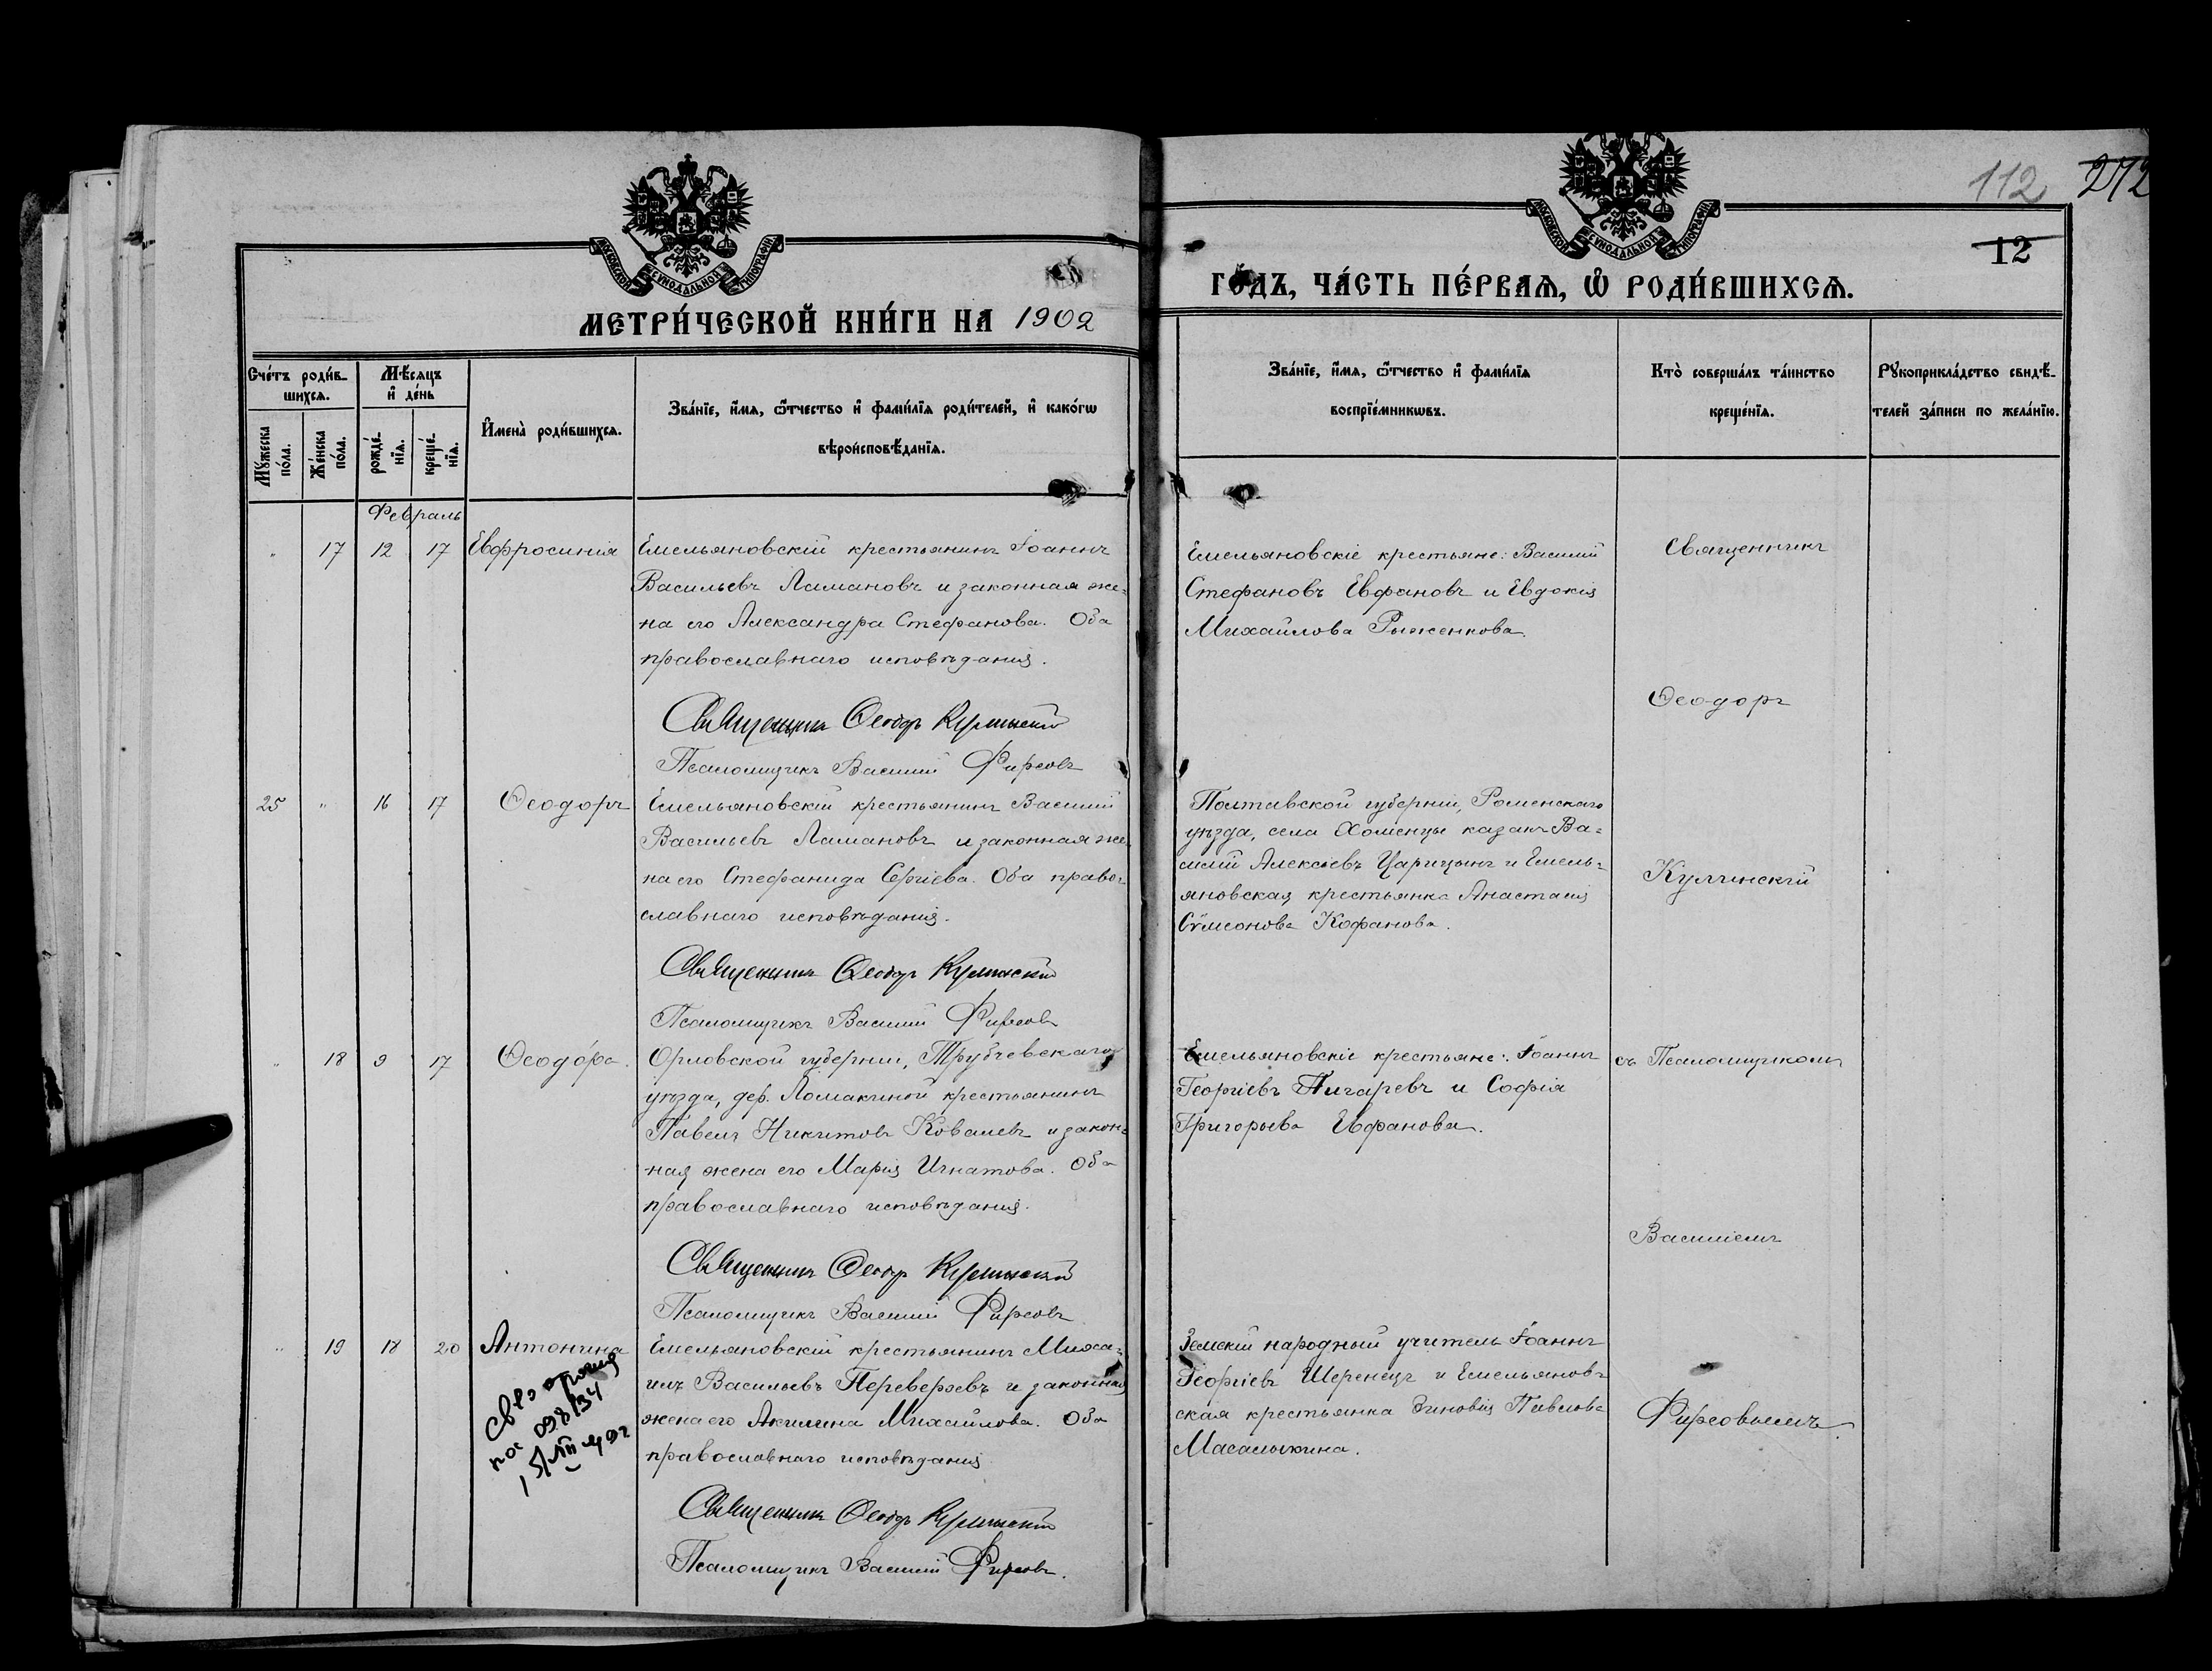 112 272
12
МОСКОВСКОЙ СѴНОДАЛЬНОЙ ТИПОГРАФІИ
МОСКОВСКОЙ СѴНОДАЛЬНОЙ ТИПОГРАФІИ
МЕТРИ́ЧЕСКОЙ КНИ́ГИ НА 1902
ГО́ДЪ, ЧА́СТЬ ПЕ́РВАѦ, Ѽ РОДИ́ВШИХСѦ.
Сче́тъ роди́в-
шихсѧ.
Мꙋ́жеска
по́ла.
Же́нска
по́ла.
Мѣ́сѧцъ
и҆ де́нь
рожде́-
нїѧ.
креще́-
нїѧ.
И҆мена̀ роди́вшихсѧ.
Зва́нїе, и҆́мѧ, ѻ҆́тчество и҆ фами́лїѧ роди́телей, и҆ како́гѡ
вѣроисповѣ́данїѧ.
Зва́нїе, и҆́мѧ, ѻ҆́тчество и҆ фами́лїѧ
воспрїе́мникѡвъ.
Кто̀ соверша́лъ та́инство
креще́нїѧ.
Рꙋкоприкла́дство свидѣ́-
телей за́писи по жела́нїю.
Февраль
" 17 12 17 Евфросинія
Емельяновскій крестьянинъ Іоаннъ
Васильевъ Ламановъ и законная же-
на его Александра Стефанова. Оба
православнаго исповѣданія.
Священникъ Ѳеодоръ Кулчинскій
Псаломщикъ Василій Фирсовъ
Емельяновскіе крестьяне: Василій
Стефановъ Евфановъ и Евдокія
Михайлова Рыженкова.
Священникъ
Ѳеодоръ
25 " 16 17 Ѳеодоръ
Емельяновскій крестьянинъ Василій
Васильевъ Ламановъ и законная же-
на его Стефанида Сергіева. Оба право-
славнаго исповѣданія.
Священникъ Ѳеодоръ Кулчинскій
Псаломщикъ Василій Фирсовъ
Полтавской губерніи, Роменскаго
уѣзда, села Хоменцы казакъ Ва-
силій Алексіевъ Царицынъ и Емель-
яновская крестьянка Анастасія
Сѵмеонова Кофанова.
Кулчинскій
" 18 9 17 Ѳеодо́ра.
Орловской губерніи, Трубчевскаго
уѣзда, дер. Ломакиной крестьянинъ
Павелъ Никитовъ Ковалевъ и закон-
ная жена его Марія Игнатова. Оба
православнаго исповѣданія.
Священникъ Ѳеодоръ Кулчинскій
Псаломщикъ Василій Фирсовъ
Емельяновскіе крестьяне: Іоаннъ
Георгіевъ Пичаревъ и Софія
Григорьева Евфанова.
съ Псаломщикомъ
Василіемъ
" 19 18 20 Антонина
Емельяновскій крестьянинъ Миха-
илъ Васильевъ Переверзевъ и законная
жена его Акилина Михайлова. Оба
православнаго исповѣданія
Священникъ Ѳеодоръ Кулчинскій
Псаломщикъ Василій Фирсовъ.
Земскій народный учитель Іоаннъ
Георгіевъ Шеренецъ и Емельянов-
ская крестьянка Зиновія Павлова
Масалыкина.
Фирсовымъ.